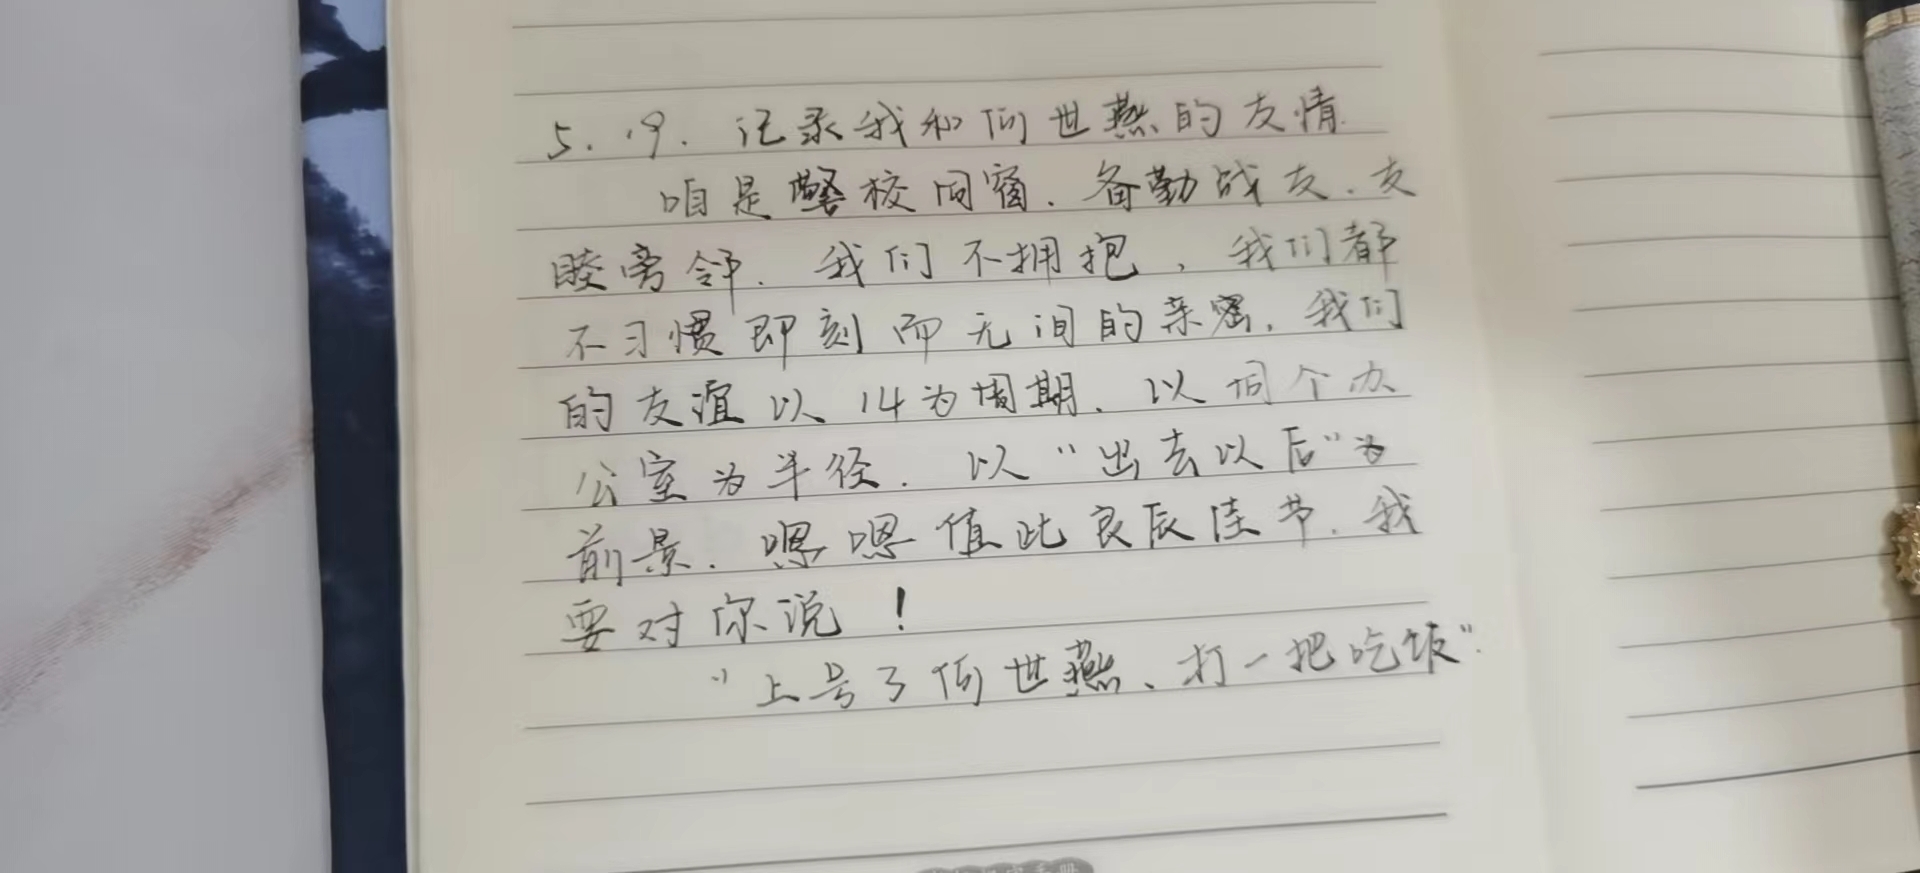 5.19. 记录我和何世燕的友情.
咱是警校同窗、备勤战友、友
睦旁邻. 我们不拥抱, 我们都
不习惯即刻而无间的亲密, 我们
的友谊以14为周期、以同个办
公室为半径. 以“出去以后”为
前景. 嗯嗯值此良辰佳节. 我
要对你说!
“上号了何世燕、打一把吃饭”.